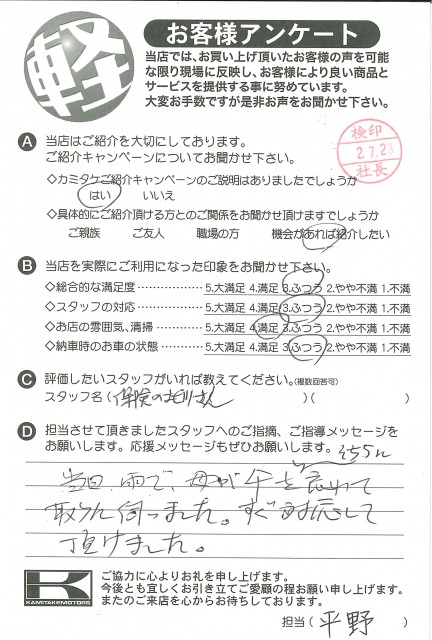 軽
お客様アンケート
当店では、お買い上げ頂いたお客様の声を可能
な限り現場に反映し、お客様により良い商品と
サービスを提供する事に努めています。
大変お手数ですが是非お声をお聞かせ下さい。
検印
27.23
社長
A 当店はご紹介を大切にしております。
ご紹介キャンペーンについてお聞かせ下さい。
◇カミタケご紹介キャンペーンのご説明はありましたでしょうか
はい いいえ
◇具体的にご紹介頂ける方とのご関係をお聞かせ頂けますでしょうか
ご親族 ご友人 職場の方 機会があれば紹介したい
B 当店を実際にご利用になった印象をお聞かせ下さい。
◇総合的な満足度 5.大満足 4.満足 3.ふつう 2.やや不満 1.不満
◇スタッフの対応 5.大満足 4.満足 3.ふつう 2.やや不満 1.不満
◇お店の雰囲気、清掃 5.大満足 4.満足 3.ふつう 2.やや不満 1.不満
◇納車時のお車の状態 5.大満足 4.満足 3.ふつう 2.やや不満 1.不満
C 評価したいスタッフがいれば教えてください。(複数回答可)
スタッフ名( )( )
D 担当させて頂きましたスタッフへのご指摘、ご指導メッセージを
お願いします。応援メッセージもぜひお願いします。
そちらに
当日、雨で、母が を忘れて
取りに伺いました。すぐ対応して
頂けました。
K
KAMITAKEMOTORS
ご協力に心よりお礼を申し上げます。
今後とも宜しくお引き立てご愛顧の程お願い申し上げます。
またのご来店を心からお待ちしております。
担当( 平野 )